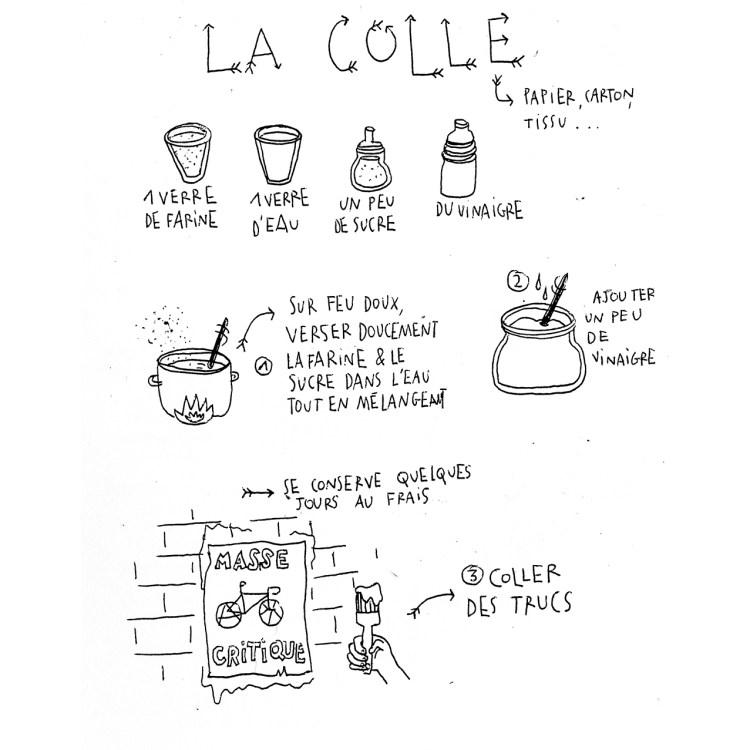 LA COLLE
PAPIER, CARTON,
TISSU...
1 VERRE
DE FARINE
1 VERRE
D'EAU
UN PEU
DE SUCRE
DU VINAIGRE
1
SUR FEU DOUX,
VERSER DOUCEMENT
LA FARINE & LE
SUCRE DANS L'EAU
TOUT EN MÉLANGEANT
2
AJOUTER
UN PEU
DE
VINAIGRE
SE CONSERVE QUELQUES
JOURS AU FRAIS
MASSE
CRITIQUE
3 COLLER
DES TRUCS